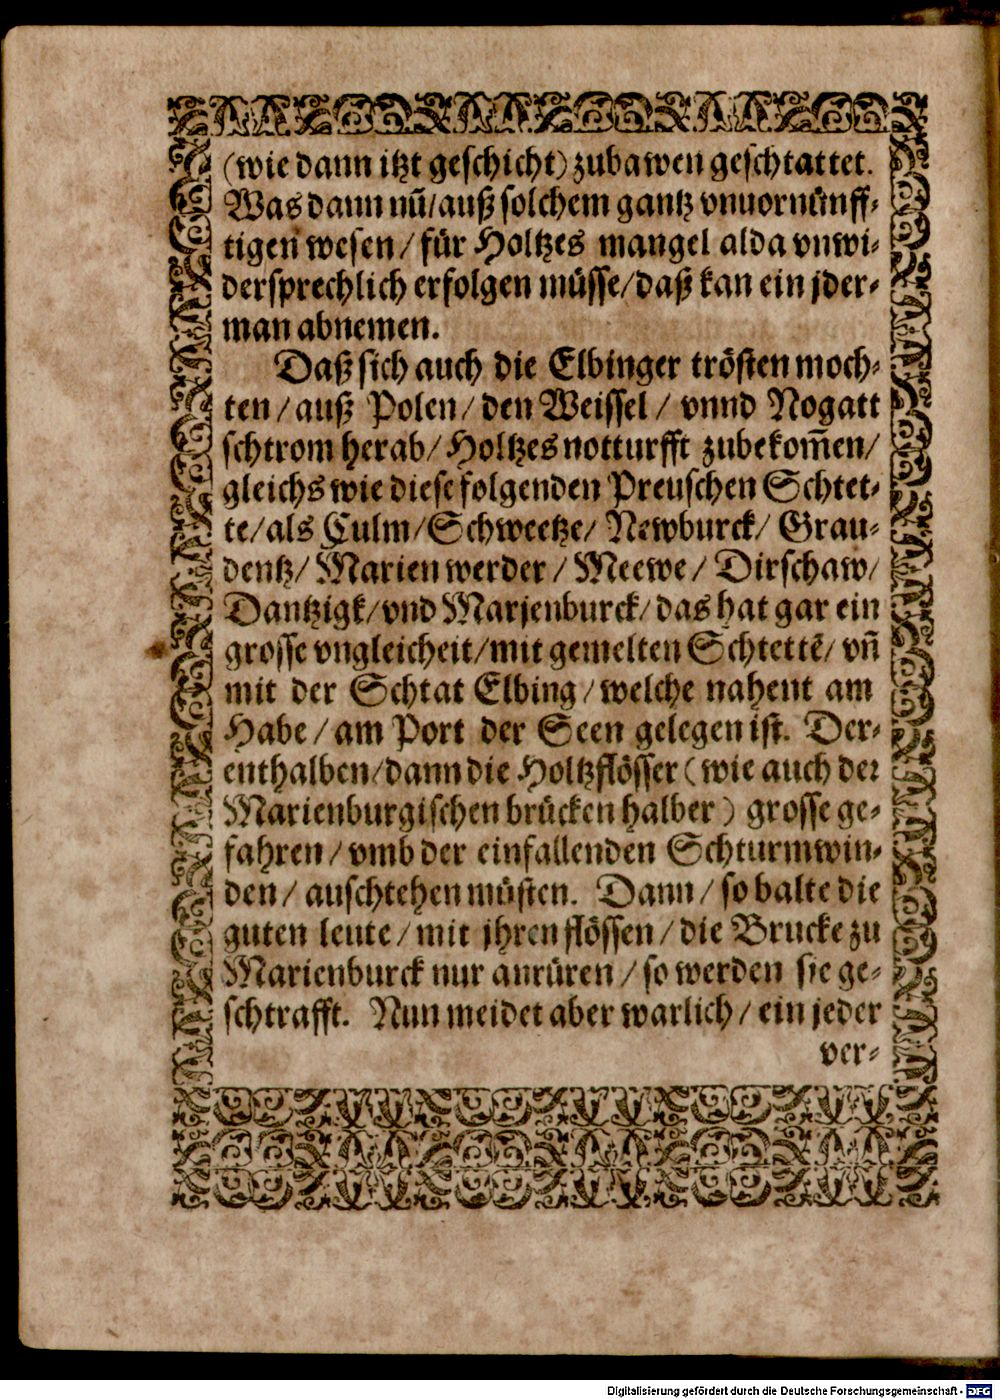 (wie dann itzt geschicht) zubawen geschtattet.
Was dann nũ/ auß solchem gantz vnuornünff⸗
tigen wesen / für Holtzes mangel alda vnwi⸗
dersprechlich erfolgen müsse/ daß kan ein jder⸗
man abnemen.
Daß sich auch die Elbinger trösten moch⸗
ten / auß Polen / den Weissel / vnnd Nogatt
schtrom herab/ Holtzes notturfft zubekom̃en/
gleichs wie diese folgenden Preuschen Schtet⸗
te/ als Culm/ Schweetze/ Newburck/ Grau⸗
dentz/ Marien werder / Meewe / Dirschaw/
Dantzigk/ vnd Marjenburck/ das hat gar ein
grosse vngleicheit/ mit gemelten Schtettẽ/ vñ
mit der Schtat Elbing / welche nahent am
Habe / am Port der Seen gelegen ist. Der⸗
enthalben/ dann die Holtzflösser (wie auch der
Marienburgischen brücken halber) grosse ge⸗
fahren / vmb der einfallenden Schturmwin⸗
den / auschtehen müsten. Dann / so balte die
guten leute / mit jhren flössen / die Brucke zu
Marienburck nur anrüren / so werden sie ge⸗
schtrafft. Nun meidet aber warlich / ein jeder
ver⸗
Digitalisierung gefördert durch die Deutsche Forschungsgemeinschaft - DFG